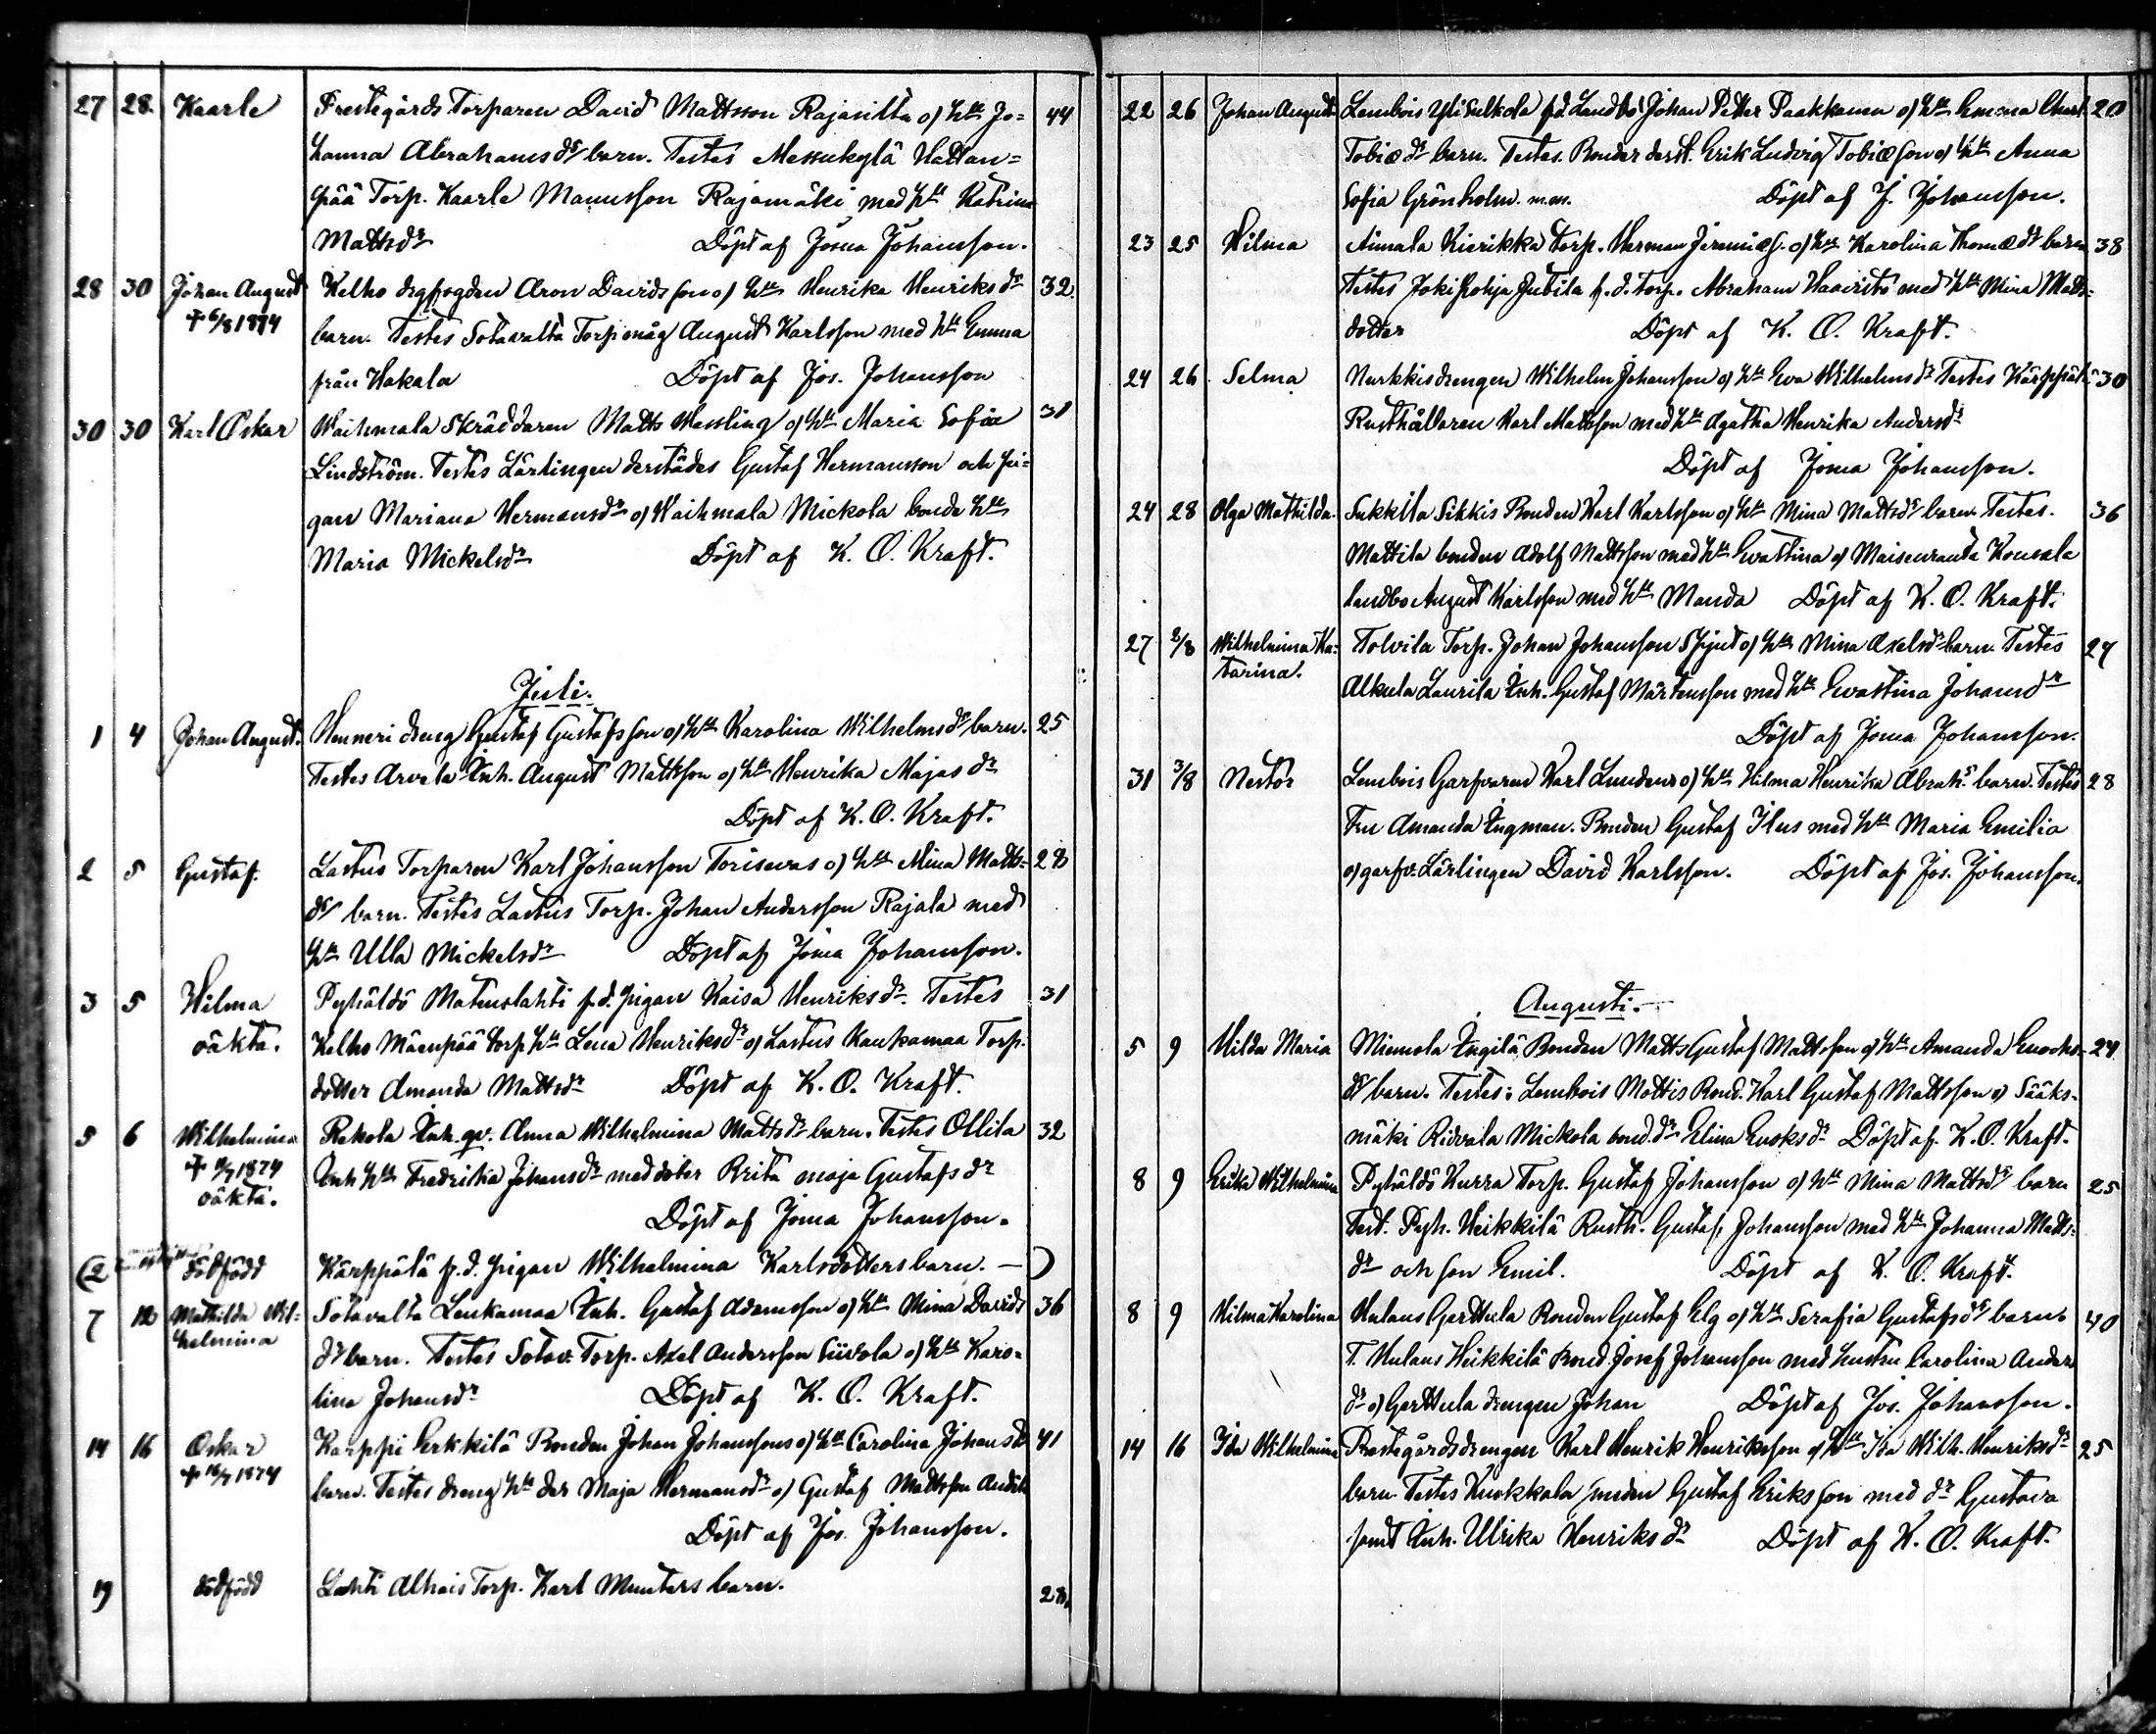 27 28. Kaarle Prestegårds Torparen David Mattsson Rajasilta o/ hu Jo= 44
hanna Abrahams dr barn. Testes Messukylä Hattan=
pää Torp. Kaarle Manusson Rajamäki med hu Katrina
Mattsdr Döpt af Josua Johansson.
28 30 Johan August Kelho dgfogden Aron Davidsson o/ hu Henrika Henriksdr 32.
† 6/8 1874 barn. Testes Sotavalta Torpmåg August Karlsson med hu Emma
från Hakala Döpt af Jos. Johansson
30 30 Karl Oskar Waihmala Skräddaren Matts Wessling o/ hu Maria Sofia 31
Lindström. Testes Lärlingen derstädes Gustaf Hermansson och pi=
gan Mariana Hermansdr o/ Waihmala Mickola bonde hu
Maria Mickelsdr Döpt af K. O. Kraft.
Juli.
1 4 Johan August. Henneri dreng Gustaf Gustafsson o/ hu Karolina Wilhelmsdr barn. 25
Testes Arvela Inh. August Mattsson o/ hu Henrika Majasdr
Döpt af K. O. Kraft.
2 5 Gustaf. Lastus Torparen Karl Johansson Torisevas o/ hu Mina Matts= 28
dr barn. Testes Lastus Torp. Johan Andersson Rajala med
hu Ulla Mickelsdr Döpt af Josua Johansson.
3 5 Hilma Pyhäldö f.d. pigan Kaisa Henriksdr. Testes 31
oäkta. Kelho Mäenpää Torp hu Lena Henriksdr o/ Lastus Kaukamaa Torp.
dotter Amanda Mattsdr Döpt af K. O. Kraft.
5 6 Wilhelmina Rekola Inh. qv. Anna Wilhelmina Mattsdr barn. Testes Ollila 32
† 1874 Inh hu Fredrika Johansdr med doter Brita maja Gustafsdr
oäkta. Döpt af Josua Johansson.
(2 dödfödd Kärppälä f.d. pigan Wilhelmina Karlsdotters barn. — )
7 12 Mathilda Wil= Sotavalta Leukamaa Inh. Gustaf Adamsson o/ hu Mina Davids 36
helmina dr barn. Testes Sotav. Torp. Axel Andersson Siivola o/ hu Karo=
lina Johansdr Döpt af K. O. Kraft.
14 16 Oskar Karppi Erkkilä Bonden Johan Johanssons o/ hu Carolina Johansdr 41
† 1874 barn. Testes dreng hu der Maja Hermansdr o/ Gustaf Mattsson
Döpt af Jos. Johansson.
19 dödfödd Lahti Alhais Torp. Karl Munters barn. 28.
22 26 Johan August Lembois Yli Sulkola f.d Landbo Johan Petter Paakkanen o/ hu Emma 20
Tobiædr barn. Testes. Bonder derst. Erik Ludvig Tobiæson o/ hu Anna
Sofia Grönholm. m.m. Döpt af J. Johansson.
23 25 Hilma Aimala Kierikka Torp. Herman Jeremiæs. o/ hu Karolina Thomædr barn 38
Testes Jokis f.d. Torp. Abraham Haavisto med hu Mina Matts=
dotter Döpt af K. O. Kraft.
24 26 Selma Nurkkis drengen Wilhelm Johansson o/ hu Eva Wilhelmsdr Testes Kärppälä 30
Rusthållaren Karl Mattsson med hu Agatha Henrika Andersdr
Döpt af Josua Johansson.
24 28 Olga Mathilda. Sukkila Sikkis Bonden Karl Karlsson o/ hu Mina Mattsdr barn. Testes. 36
Mattila bonden Adolf Mattsson med hu Evastina o/ Maisenranta Kouvala
landbo August Karlsson med hu Manda Döpt af K. O. Kraft.
27 2/8 Wilhelmina Ka= Tolvila Torp. Johan Johansson Spjut o/ hu Mina Axelsdr barn. Testes 27
tarina. Alkula Laurila Inh. Gustaf Mårtensson med hu Evastina Johansdr
Döpt af Josua Johansson.
31 3/8 Nestor Lembois Garfvaren Karl Lundens o/ hu Hilma Henrika Abrahs. barn. Testes 28
Fru Amanda Ingman. Bonden Gustaf Ilus med hu Maria Emilia
o/ garfv. Lärlingen David Karlsson. Döpt af Jos. Johansson.
Augusti.
5 9 Hilda Maria Miemola Ingilä Bonden Matts Gustaf Mattsson o/ hu Amanda Enochs= 24
dr barn. Testes: Lembois Mottis Bond. Karl Gustaf Mattsson o/ Sääks=
mäki Ridvala Mickola bond. dr Elina Enoksdr Döpt af K. O. Kraft.
8 9 Erika Wilhelmina Pyhäldö Kurra Torp. Gustaf Johansson o/ hu Mina Mattsdr barn 25
Test. Pyh. Heikkilä Rusth. Gustaf Johansson med hu Johanna Matts=
dr och son Emil. Döpt af K. O. Kraft.
8 9 Hilma Karolina Hulaus Gerttula Bonden Gustaf Elg o/ hu Serafia Gustafsdr barn. 40
T. Hulaus Heikkilä Bond. Josef Johansson med hustru Carolina Anders
dr o/ Gerttula drengen Johan Döpt af Jos. Johansson.
14 16 Ida Wilhelmina Prestegårdsdrengen Karl Henrik Henriksson o/ hu Ida Wilh. Henriksdr 25
barn. Testes Kuokkala smeden Gustaf Eriksson med dr Gustava
samt Inh. Ulrika Henriksdr Döpt af K. O. Kraft.